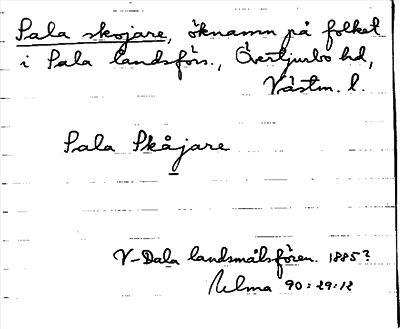 Sala skojare, öknamn på folket
i Sala landsförs., Övertjurbo hd,
Västm. l.
Sala Skåjare
V-Dala landsmålsfören. 1885?
Ulma 90:29:12